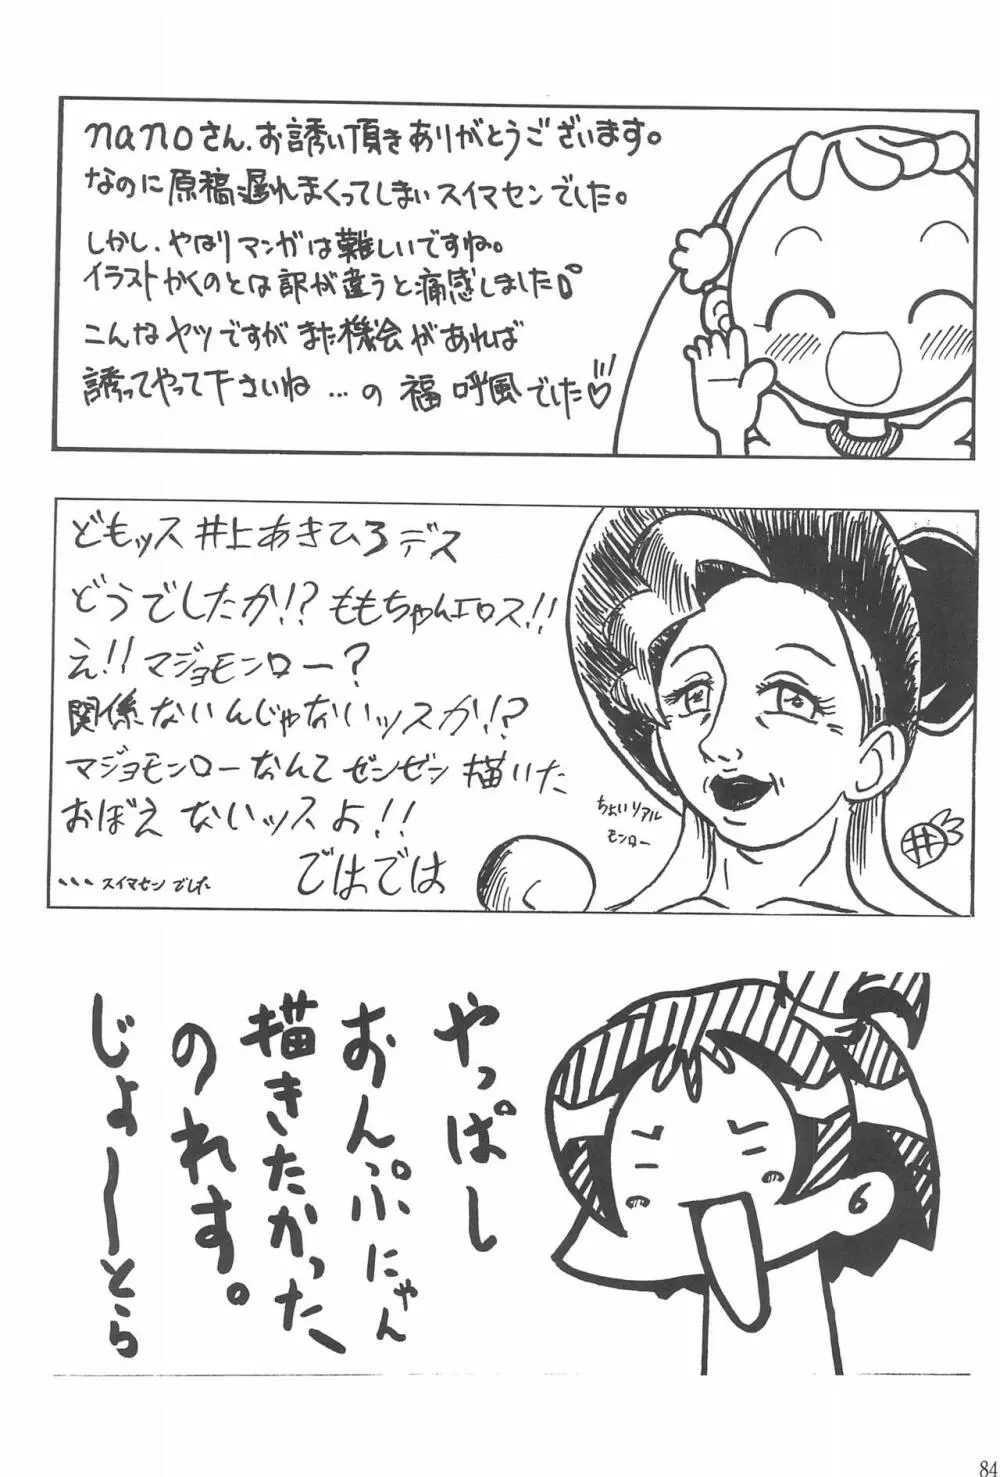 nanoさん、お誘い頂きありがとうございます。
なのに原稿遅れまくってしまいスイマセンでした。
しかし、やはりマンガは難しいですね。
イラストかくのとは訳が違うと痛感しました。
こんなヤツですがまた機会があれば
誘ってやって下さいね…の 福 呼風でした♡
どもッス 井上あきひろデス
どうでしたか!? ももちゃんエロス!!
え!! マジョモンロー?
関係ないんじゃないッスか!?
マジョモンローなんてゼンゼン描いた
おぼえ ないッスよ!!
ではでは
、、、スイマセンでした
ちょいリアル
モンロー
井
やっぱし
おんぷにゃん
描きたかった、
のれす。
じょーとら
84